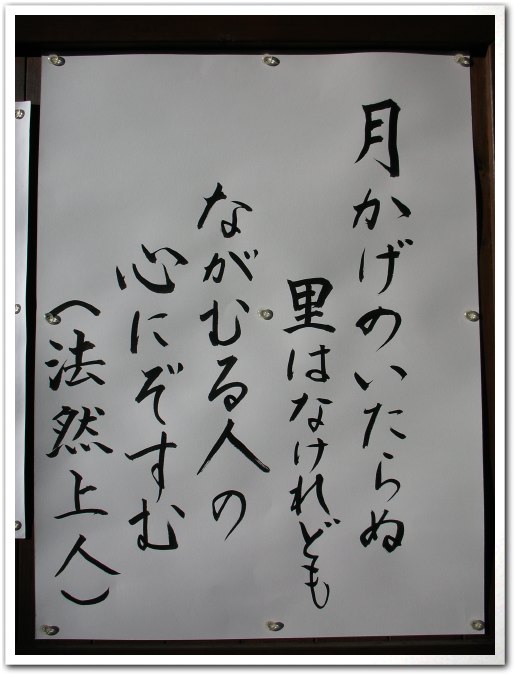 月かげのいたらぬ
里はなけれども
ながむる人の
心にぞすむ
(法然上人)